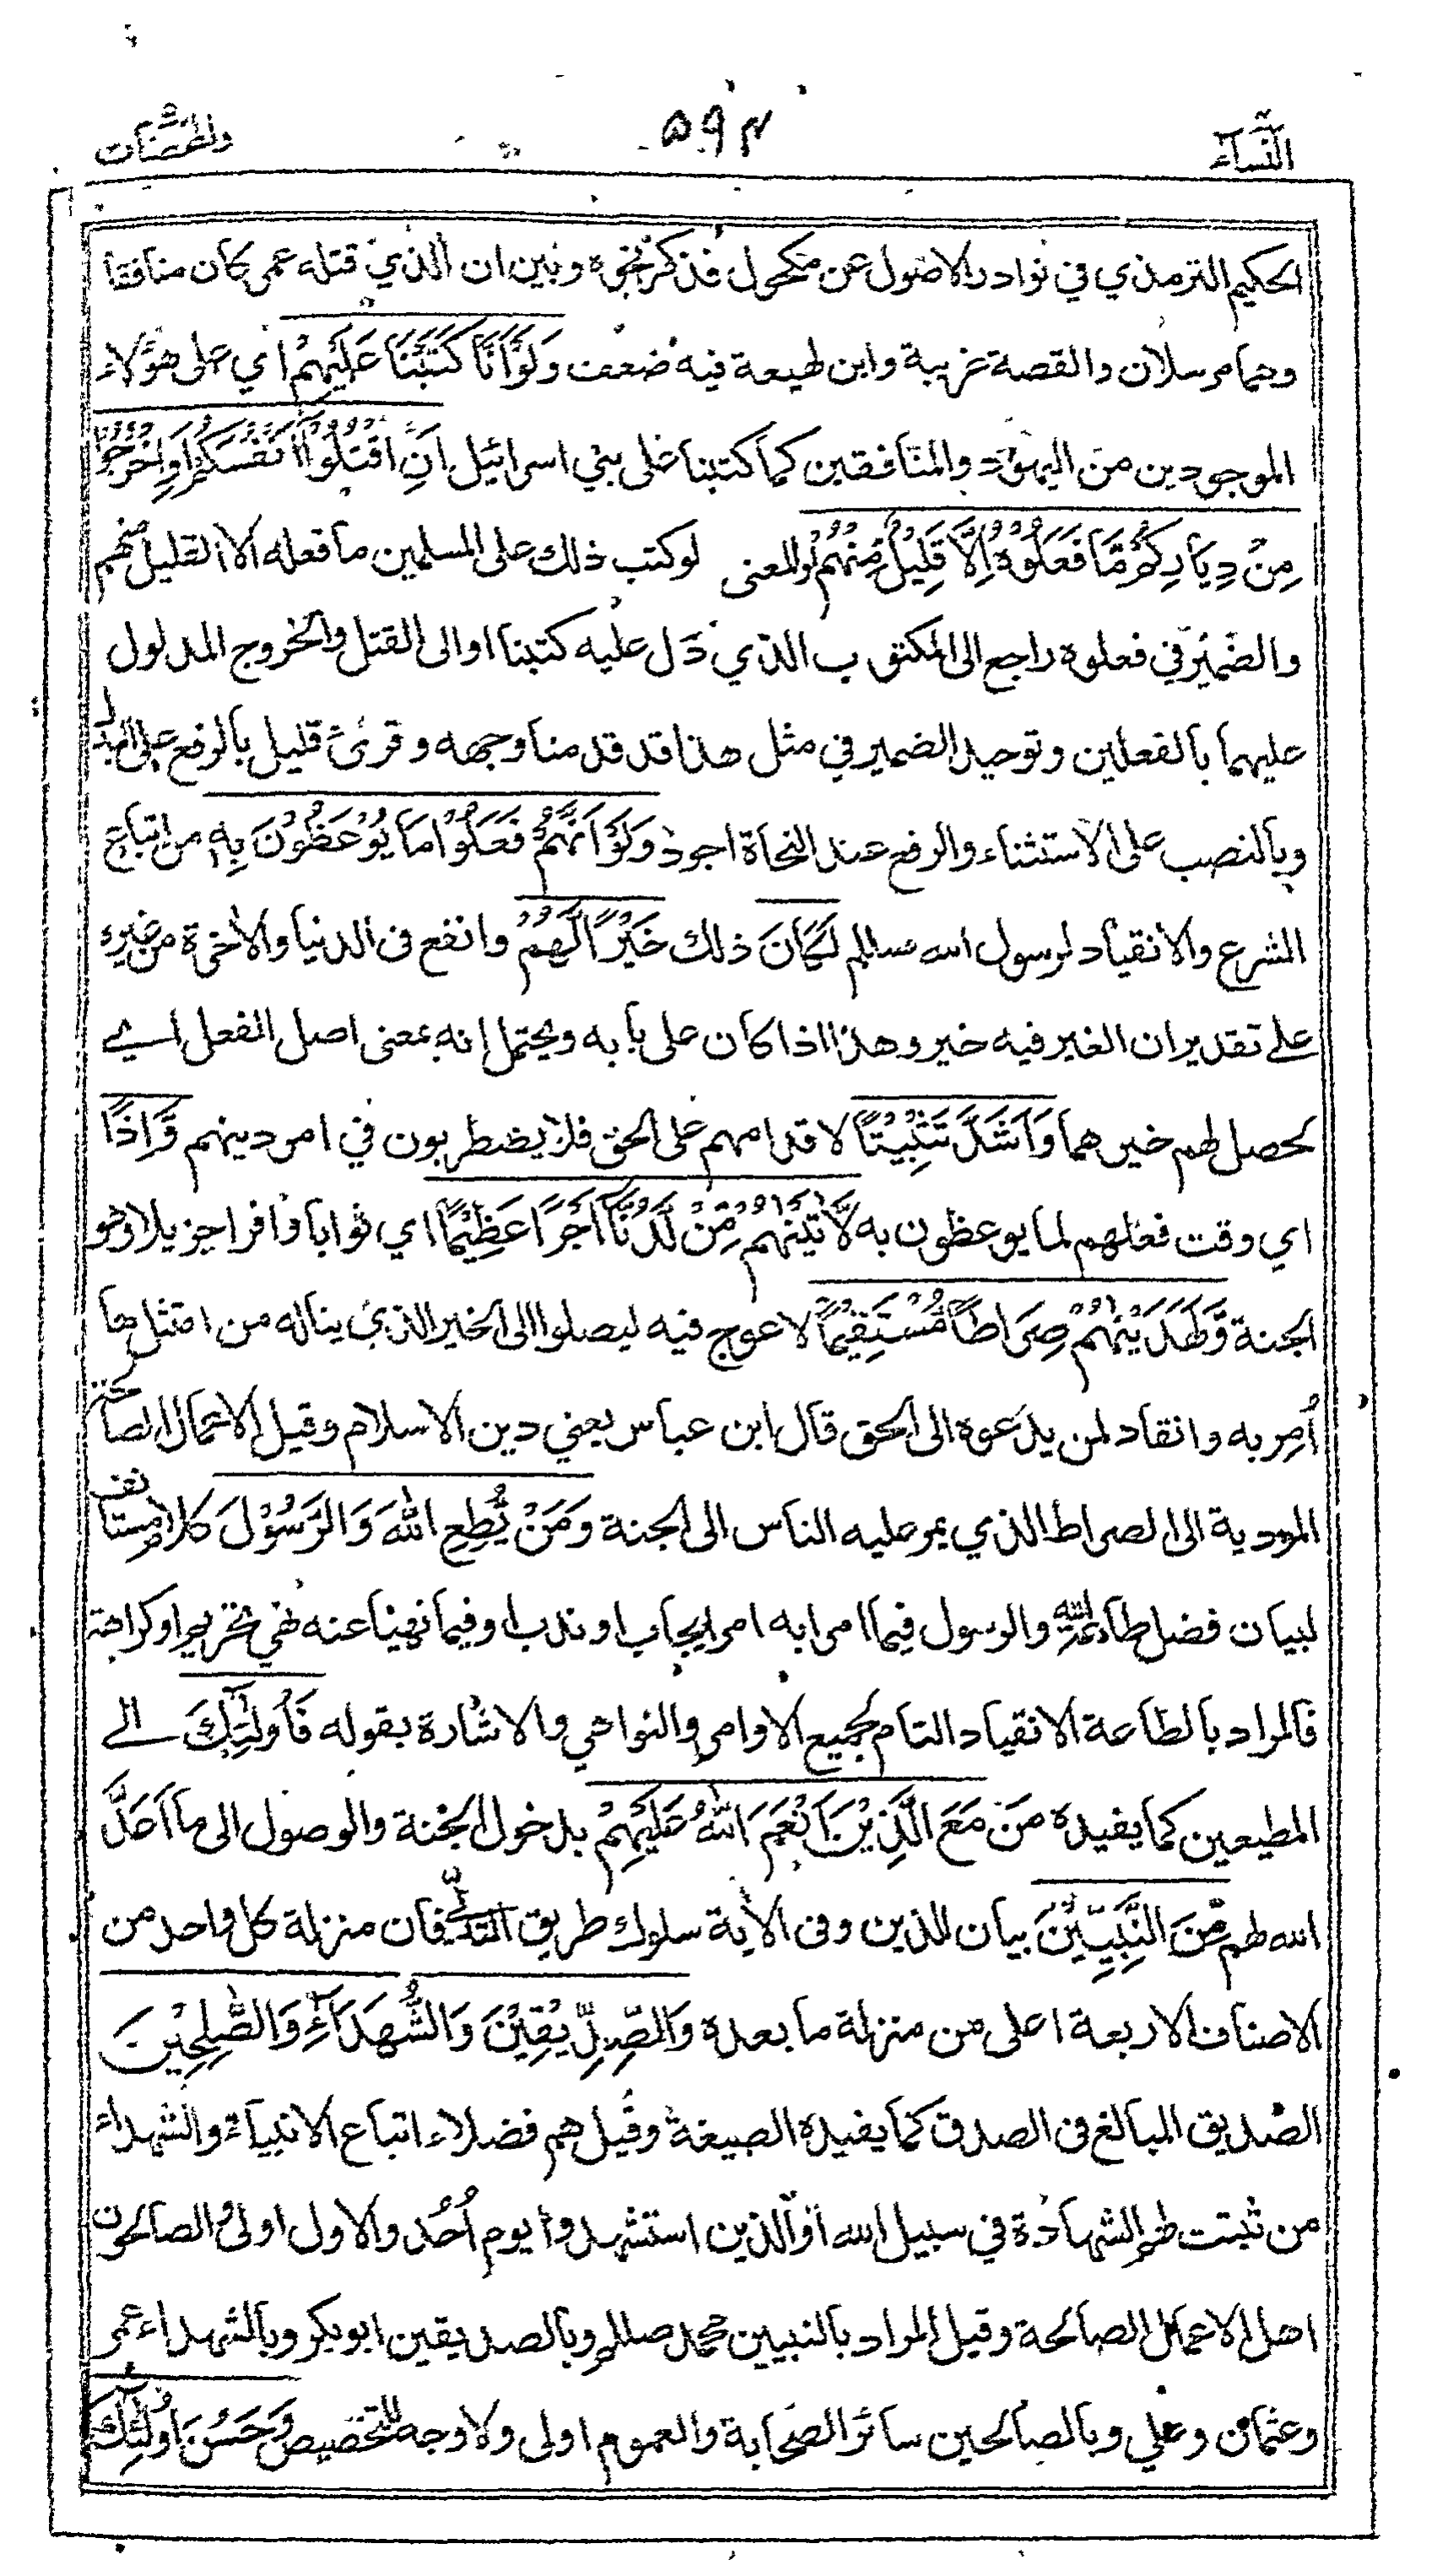 النساء ۵۹۴ والمحصنات
الحكيم الترمذي في نوادر الاصول عن مكحول فذكر نحوه وبين ان الذي قتله عمر كان منافقا
وهما مرسلان والقصة غريبة وابن لهيعة فيه ضعف وَلَوْ اَنَّا كَتَبْنَا عَلَيْهِمْ اي على هؤلاء
الموجودين من اليهود والمنافقين كما كتبنا على بني اسرائيل اَنِ اقْتُلُوْا اَنْفُسَكُمْ اَوِ اخْرُجُوْا
مِنْ دِيَارِكُمْ مَّا فَعَلُوْهُ اِلَّا قَلِيْلٌ مِّنْهُمْ والمعنى لو كتب ذلك على المسلمين ما فعله الا القليل منهم
والضمير في فعلوه راجع الى المكتوب الذي دل عليه كتبنا او الى القتل والخروج المدلول
عليهما بالفعلين وتوحيد الضمير في مثل هذا قد قدمنا وجهه وقرئ قليل بالرفع على البدل
وبالنصب على الاستثناء والرفع عند النحاة اجود وَلَوْ اَنَّهُمْ فَعَلُوْا مَا يُوْعَظُوْنَ بِهٖ من اتباع
الشرع والانقياد لرسول الله صللم لَكَانَ ذلك خَيْرًا لَّهُمْ وانفع فى الدنيا والاخرة من غيره
على تقدير ان الغير فيه خير وهذا اذا كان على بابه ويحتمل انه بمعنى اصل الفعل اي
لحصل لهم خيرهما وَاَشَدَّ تَثْبِيْتًا لاقدامهم على الحق فلا يضطربون في امر دينهم وَّاِذًا
اي وقت فعلهم لما يوعظون به لَّاٰتَيْنٰهُمْ مِّنْ لَّدُنَّا اَجْرًا عَظِيْمًا اي ثوابا وافرا جزيلا وهو
الجنة وَّلَهَدَيْنٰهُمْ صِرَاطًا مُّسْتَقِيْمًا لا عوج فيه ليصلوا الى الخير الذي يناله من امتثل ما
اُمِر به وانقاد لمن يدعوه الى الحق قال ابن عباس يعني دين الاسلام وقيل الاعمال الصالحة
المودية الى الصراط الذي يمر عليه الناس الى الجنة وَمَنْ يُّطِعِ اللّٰهَ وَالرَّسُوْلَ كلام مستانف
لبيان فضل طاعة الله والرسول فيما امرا به امر ايجاب او ندب او فيما نهيا عنه نهي تحريم او كراهة
فالمراد بالطاعة الانقياد التام لجميع الاوامر والنواهي والاشارة بقوله فَاُولٰٓئِكَ الى
المطيعين كما يفيده مَن مَعَ الَّذِيْنَ اَنْعَمَ اللّٰهُ عَلَيْهِمْ بدخول الجنة والوصول الى ما اَعَدَّ
الله لهم مِّنَ النَّبِيّٖنَ بيان للذين وفى الاية سلوك طريق التدلي فان منزلة كل واحد من
الاصناف الاربعة اعلى من منزلة ما بعده وَالصِّدِّيْقِيْنَ وَالشُّهَدَآءِ وَالصّٰلِحِيْنَ
الصديق المبالغ فى الصدق كما يفيده الصيغة وقيل هم فضلاء اتباع الانبياء والشهداء
من ثبتت لهم الشهادة في سبيل الله او الذين استشهدوا يوم اُحُد والاول اولى والصالحون
اهل الاعمال الصالحة وقيل المراد بالنبيين محمد صللم وبالصديقين ابوبكر وبالشهداء عمر
وعثمان وعلي وبالصالحين سائر الصحابة والعموم اولى ولا وجه للتخصيص وَحَسُنَ اُولٰٓئِكَ